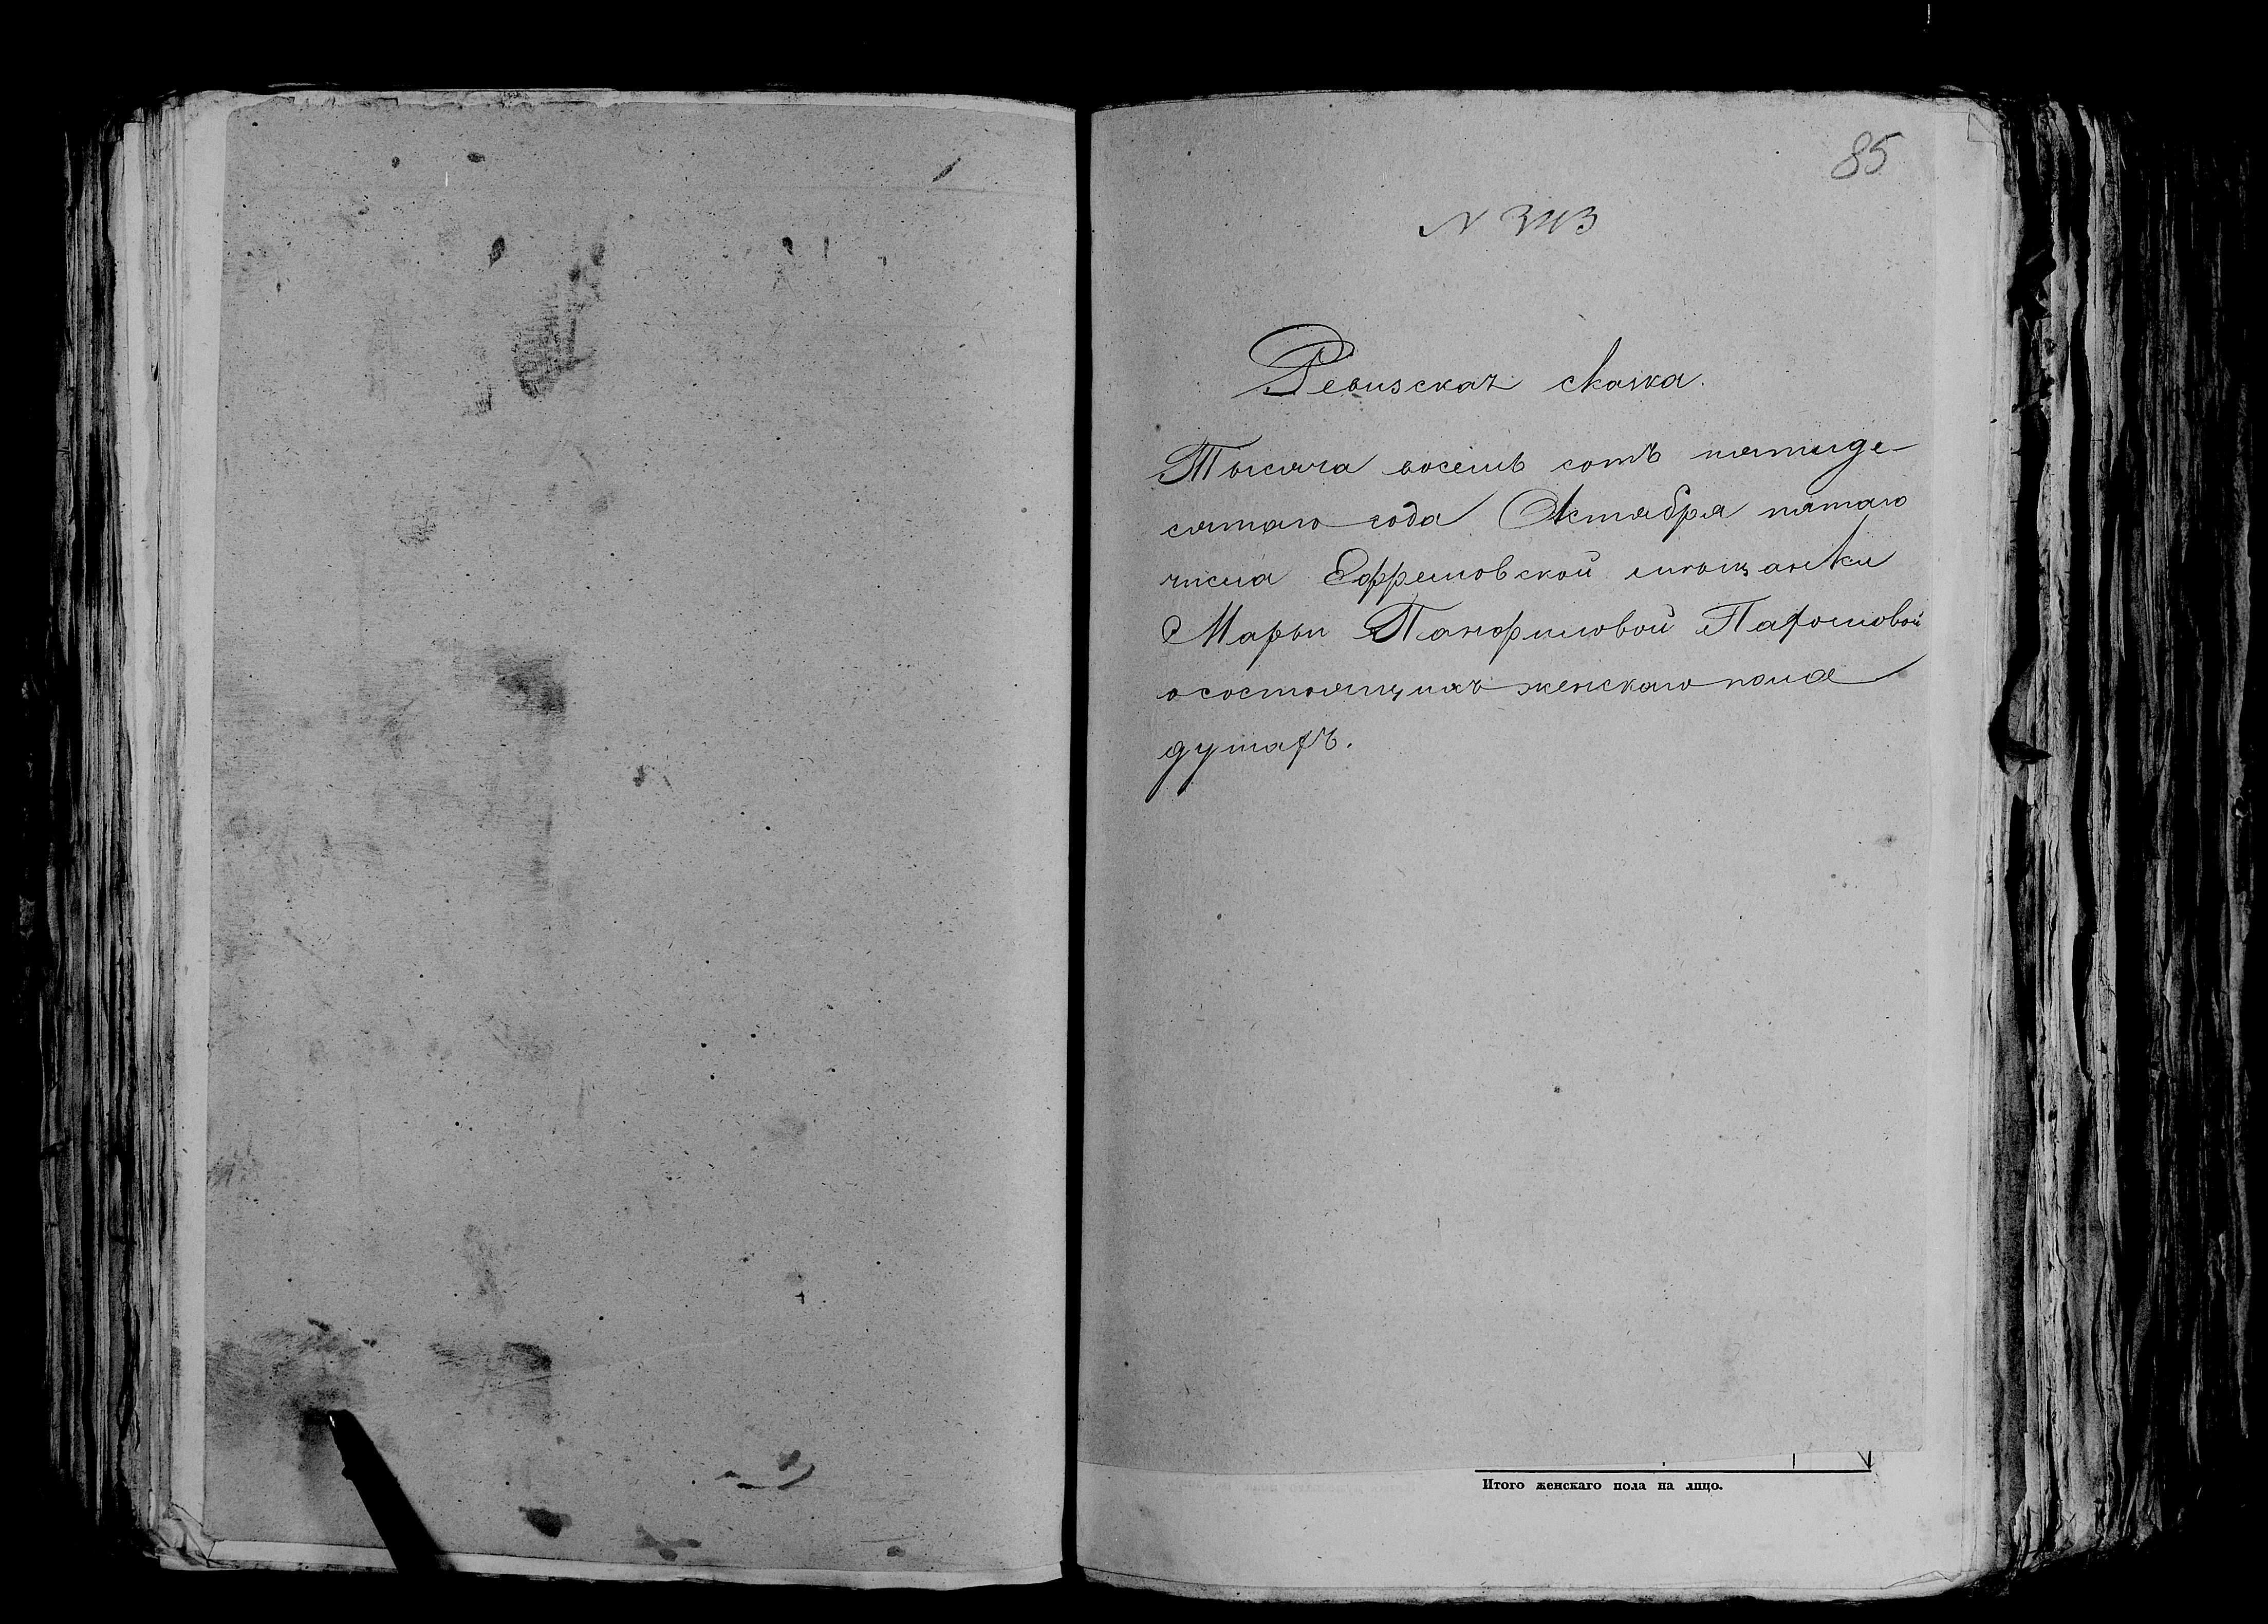 85
N 343
Ревизская сказка.
Тысяча восемь сотъ пятиде-
сятаго года Октября пятаго
числа Ефремовской мѣщанки
Марьи Панфиловой Пахомовой
о состоящихъ женскаго пола
душахъ.
Итого женскаго пола на лицо.